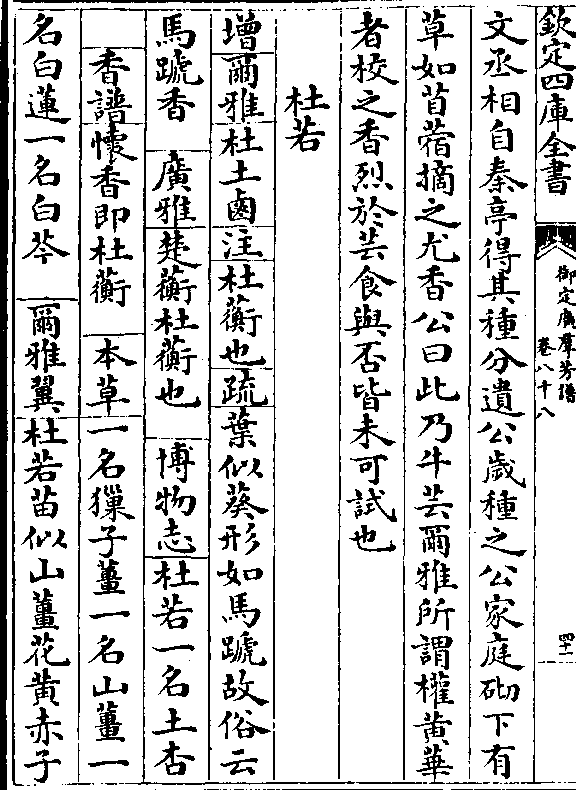 欽定四庫全書
御定廣群芳譜
卷八十八
四十一
文丞相自秦亭得其種分遺公歲種之公家庭砌下有
草如苜蓿摘之尤香公曰此乃牛芸爾雅所謂權黄華
者校之香烈於芸食與否皆未可試也
杜若
增爾雅杜土鹵注杜蘅也疏葉似葵形如馬蹏故俗云
馬蹏香 廣雅楚蘅杜蘅也 博物志杜若一名土杏
香譜懷香即杜蘅 本草一名獵子薑一名山薑一
名白蓮一名白芩 爾雅翼杜若苗似山薑花黄赤子